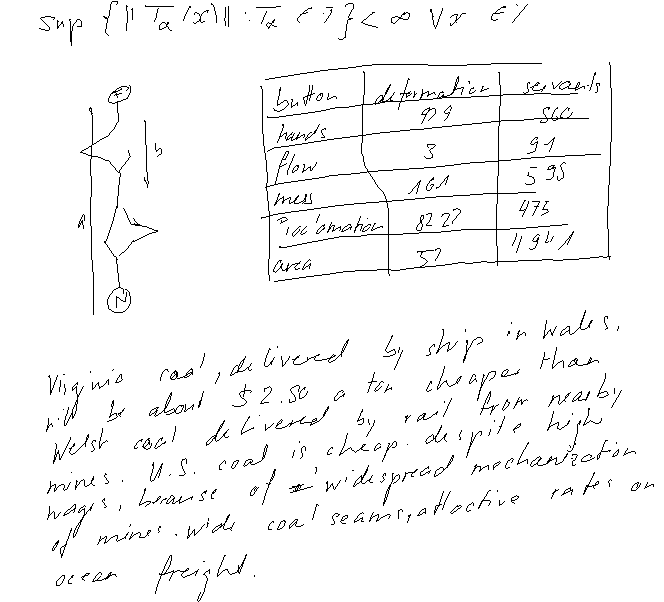 sup { || T_α (x) || : T_α ∈ 7 } < ∞ ∀x ∈
button deformation servants
hands 979 560
flow 3 91
mess 161 595
Proclamation 8227 475
area 57 4941
b
a
N
Virginia coal, delivered by ship in Wales,
will be about $ 2.50 a ton cheaper than
Welsh coal delivered by rail from nearby
mines. U.S. coal is cheap. despite high
wages, because of widespread mechanization
of mines. wide coal seams, attractive rates on
ocean freight.